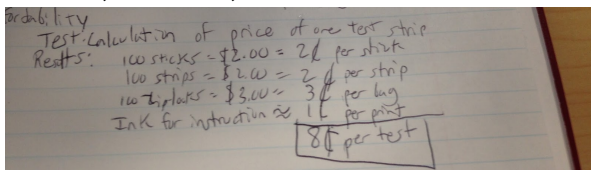 fordability
Test: Calculation of price of one test strip
Results: 100 sticks = $2.00 = 2¢ per stick
100 strips = $2.00 = 2¢ per strip
100 Ziplocks = $3.00 = 3¢ per bag
Ink for instruction ≈ 1¢ per print
8¢ per test